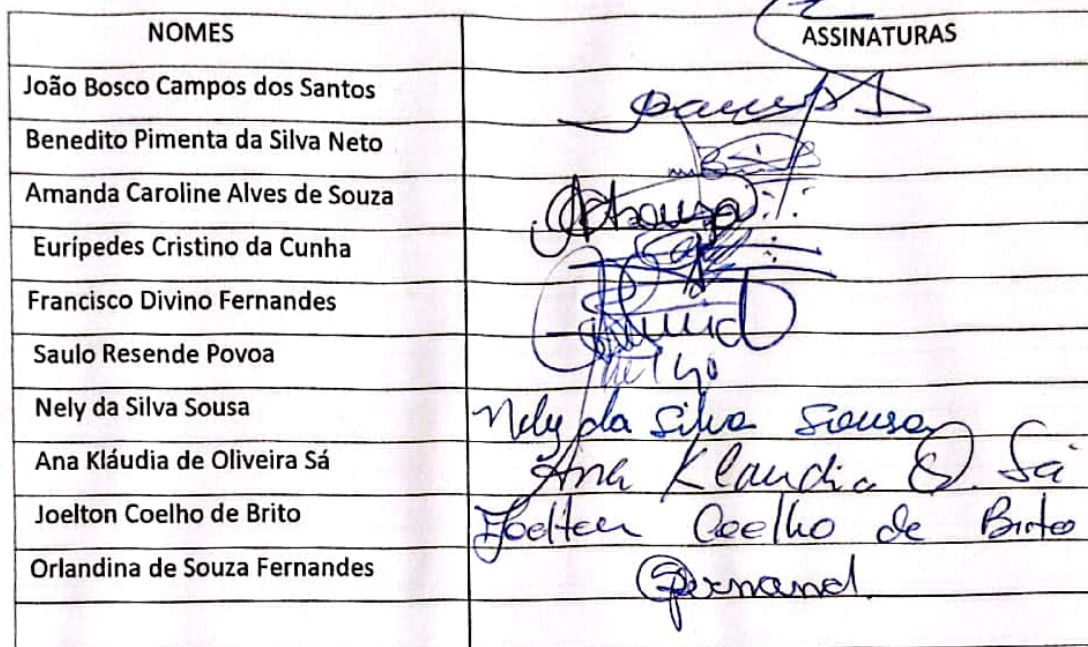 NOMES ASSINATURAS
João Bosco Campos dos Santos
Benedito Pimenta da Silva Neto
Amanda Caroline Alves de Souza
Eurípedes Cristino da Cunha
Francisco Divino Fernandes
Saulo Resende Povoa
Nely da Silva Sousa Nely da Silva Sousa
Ana Kláudia de Oliveira Sá Ana Klaudia O. Sá
Joelton Coelho de Brito Joelton Coelho de Brito
Orlandina de Souza Fernandes